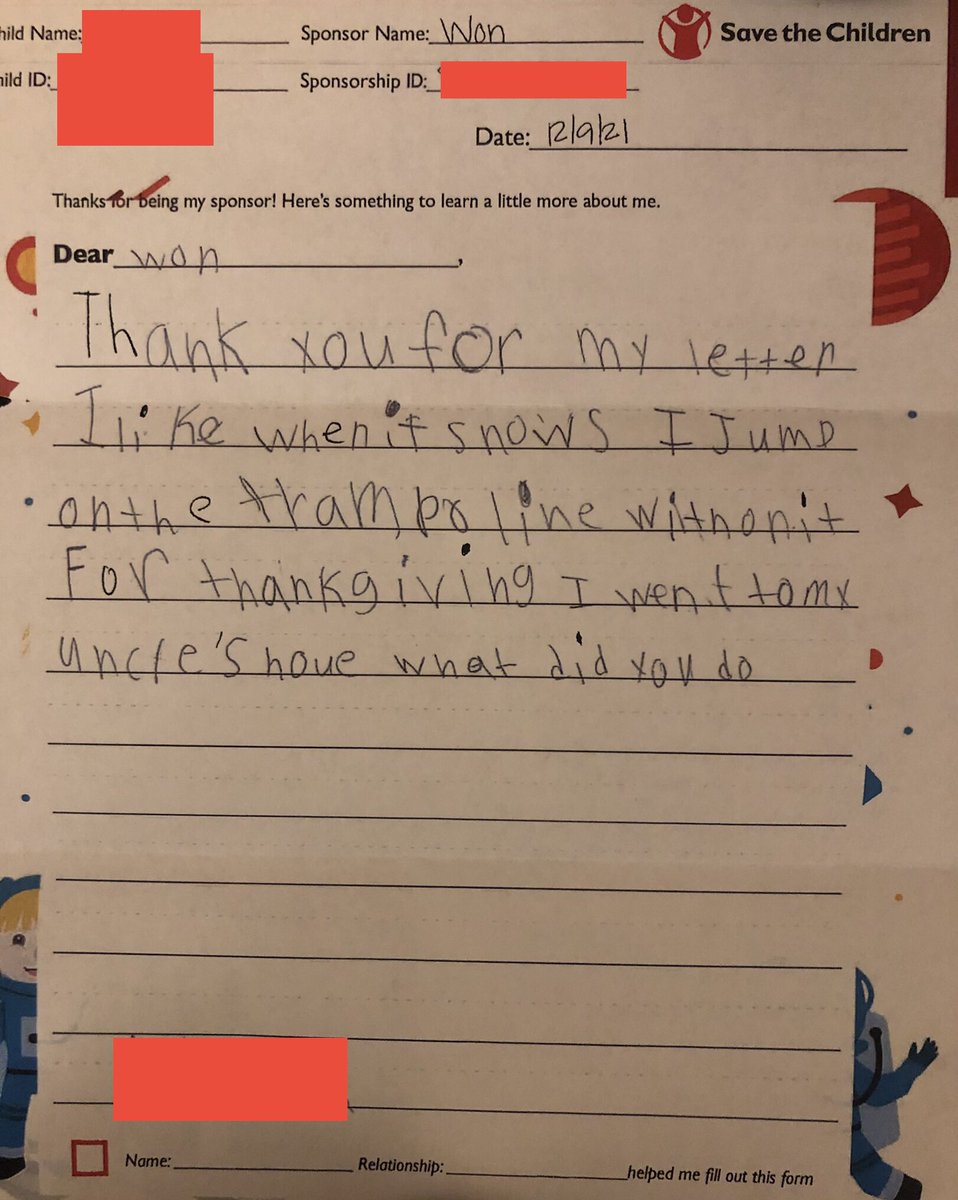 hild Name: Sponsor Name: Won Save the Children
hild ID: Sponsorship ID:
Date: 12/9/21
Thanks for being my sponsor! Here's something to learn a little more about me.
Dear won,
Thank you for my letter
I like when it snows I Jump
on the trampoline with on it
For thankgiving I went to my
uncle's houe what did you do
Name: Relationship: helped me fill out this form